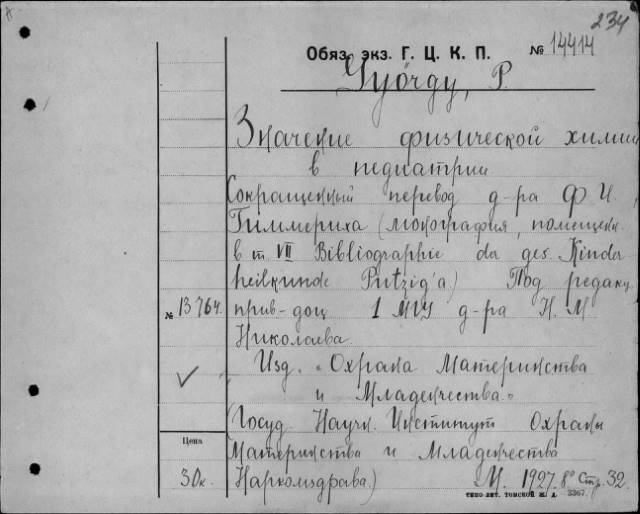 234
Обяз. экз. Г. Ц. К. П. № 14414
György, P.
Значение физической химии
в педиатрии
Сокращенный перевод д-ра Ф. И.
Гиммериха (монография, помещен.
в т VII Bibliographie der ges. Kinder
heilkunde Putzig'a.) Под редакц.
№ 13764. прив-доц 1 МГУ д-ра Н. М.
Николаева.
Изд. „Охрана Материнства
и Младенчества."
(Госуд. Научн. Институт Охраны
Цена Материнства и Младенчества
30к. Наркомздрава.) М. 1927. 8° Стр. 32.
ТИПО-ЛИТ. ТОМСКОЙ Ж. Д. 3367.